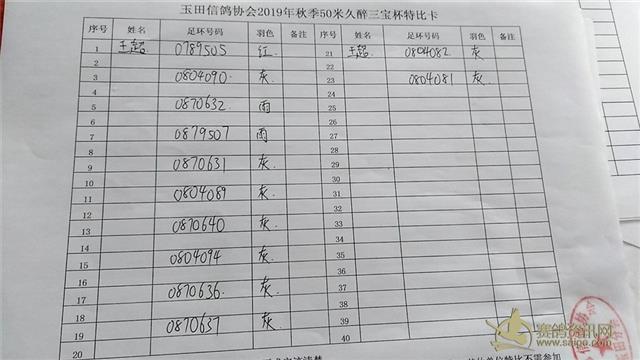 玉田信鸽协会2019年秋季50米久醉三宝杯特比卡
序号 姓名 足环号码 羽色 备注 序号 姓名 足环号码 羽色 备注
1 王超 0789505 红 21 王超 0804082 灰
2 22
3 0804090 灰 23 0804081 灰
4 24
5 0870632 雨 25
6 26
7 0879507 雨 27
8 28
9 0870631 灰 29
10 30
11 0804089 灰 31
12 32
13 0870640 灰 33
14 34
15 0804094 灰 35
16 36
17 0870636 灰 37
18 38
19 0870637 灰 39
20 40
赛鸽资讯网
www.saige.com